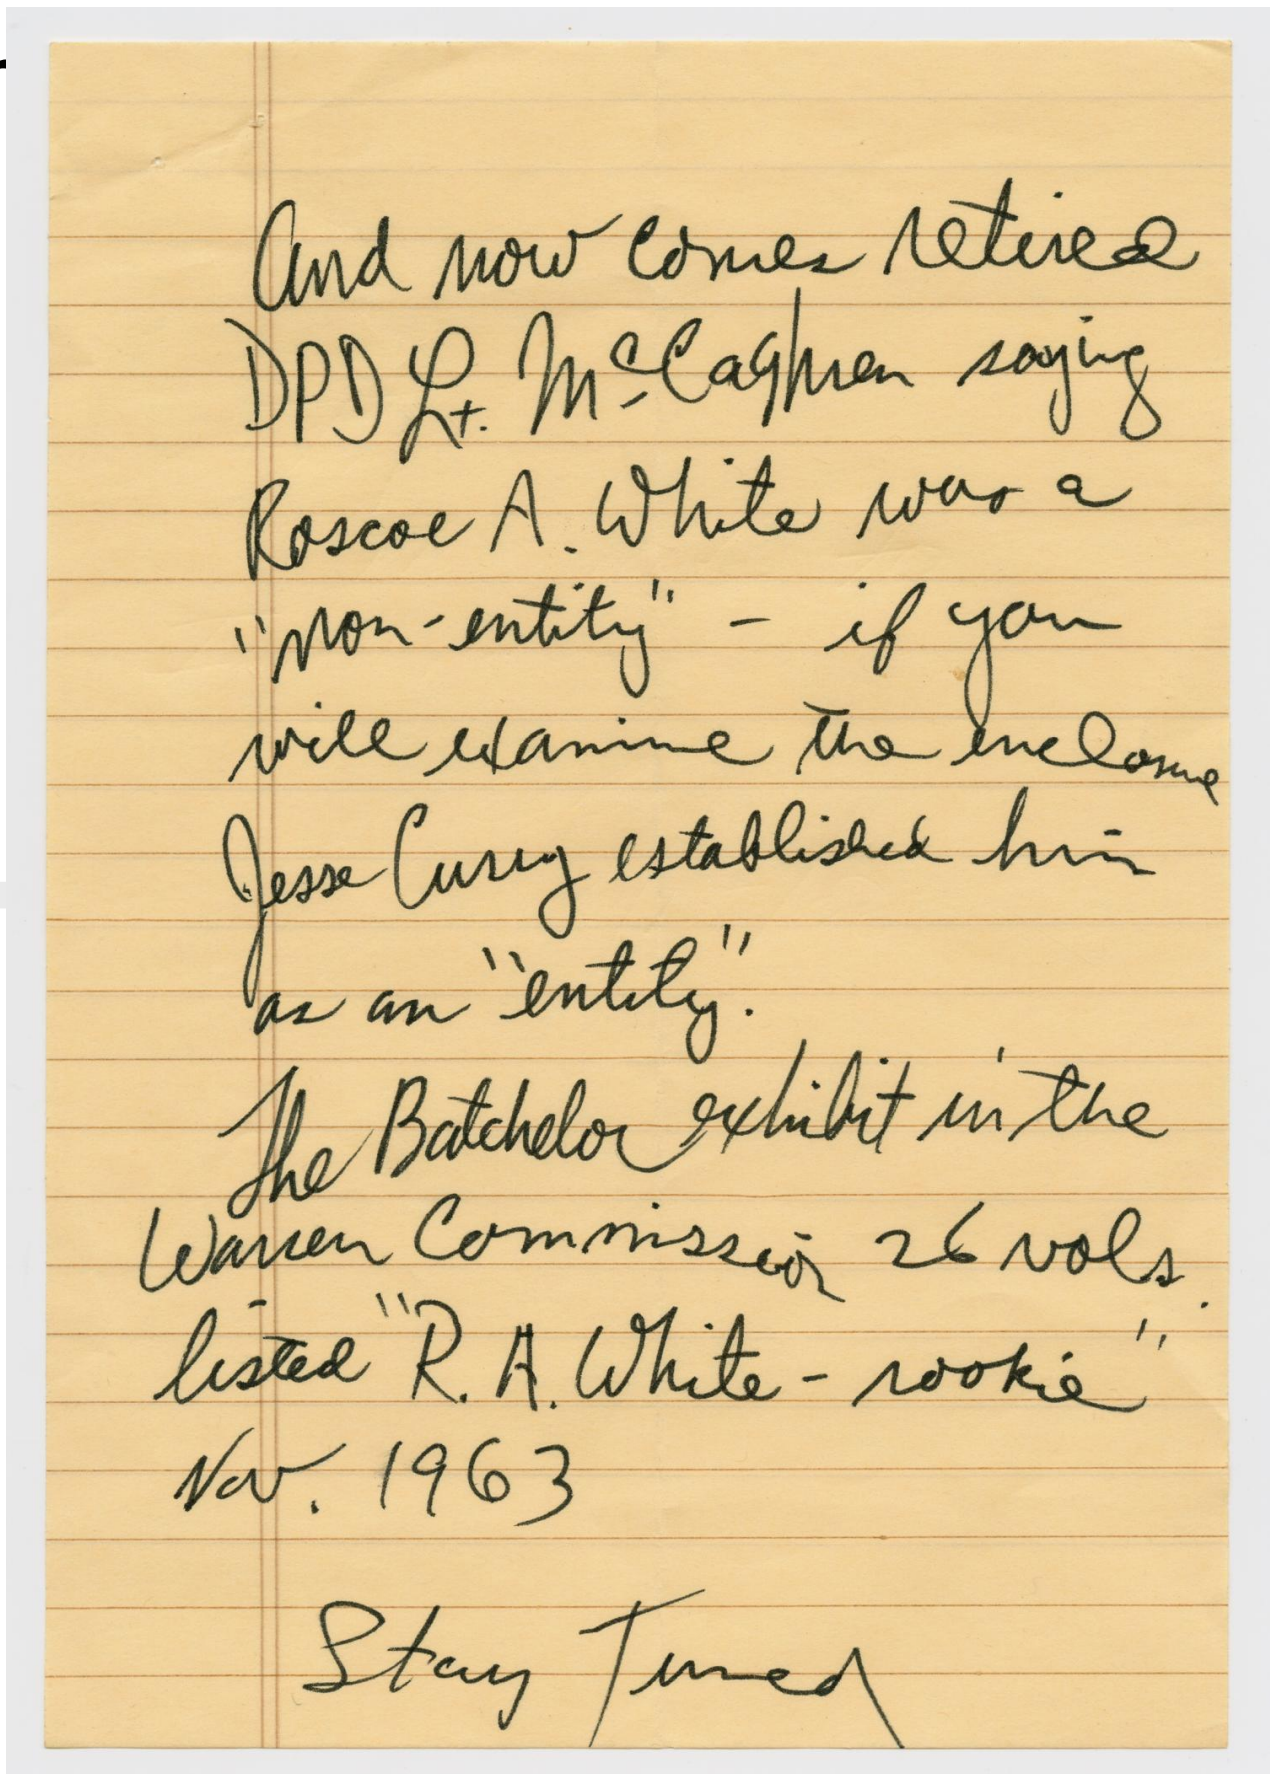 And now comes retired
DPD Lt. McCaghren saying
Roscoe A. White was a
"non-entity" - if you
will examine the enclosure
Jesse Curry established him
as an "entity".
The Batchelor exhibit in the
Warren Commission 26 vols.
listed "R. A. White - rookie"
Nov. 1963
Stay Tuned